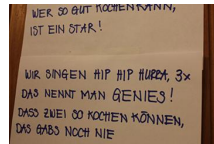 WER SO GUT KOCHEN KANN,
IST EIN STAR!
WIR SINGEN HIP HIP HURRA, 3x
DAS NENNT MAN GENIES!
DASS ZWEI SO KOCHEN KÖNNEN,
DAS GABS NOCH NIE